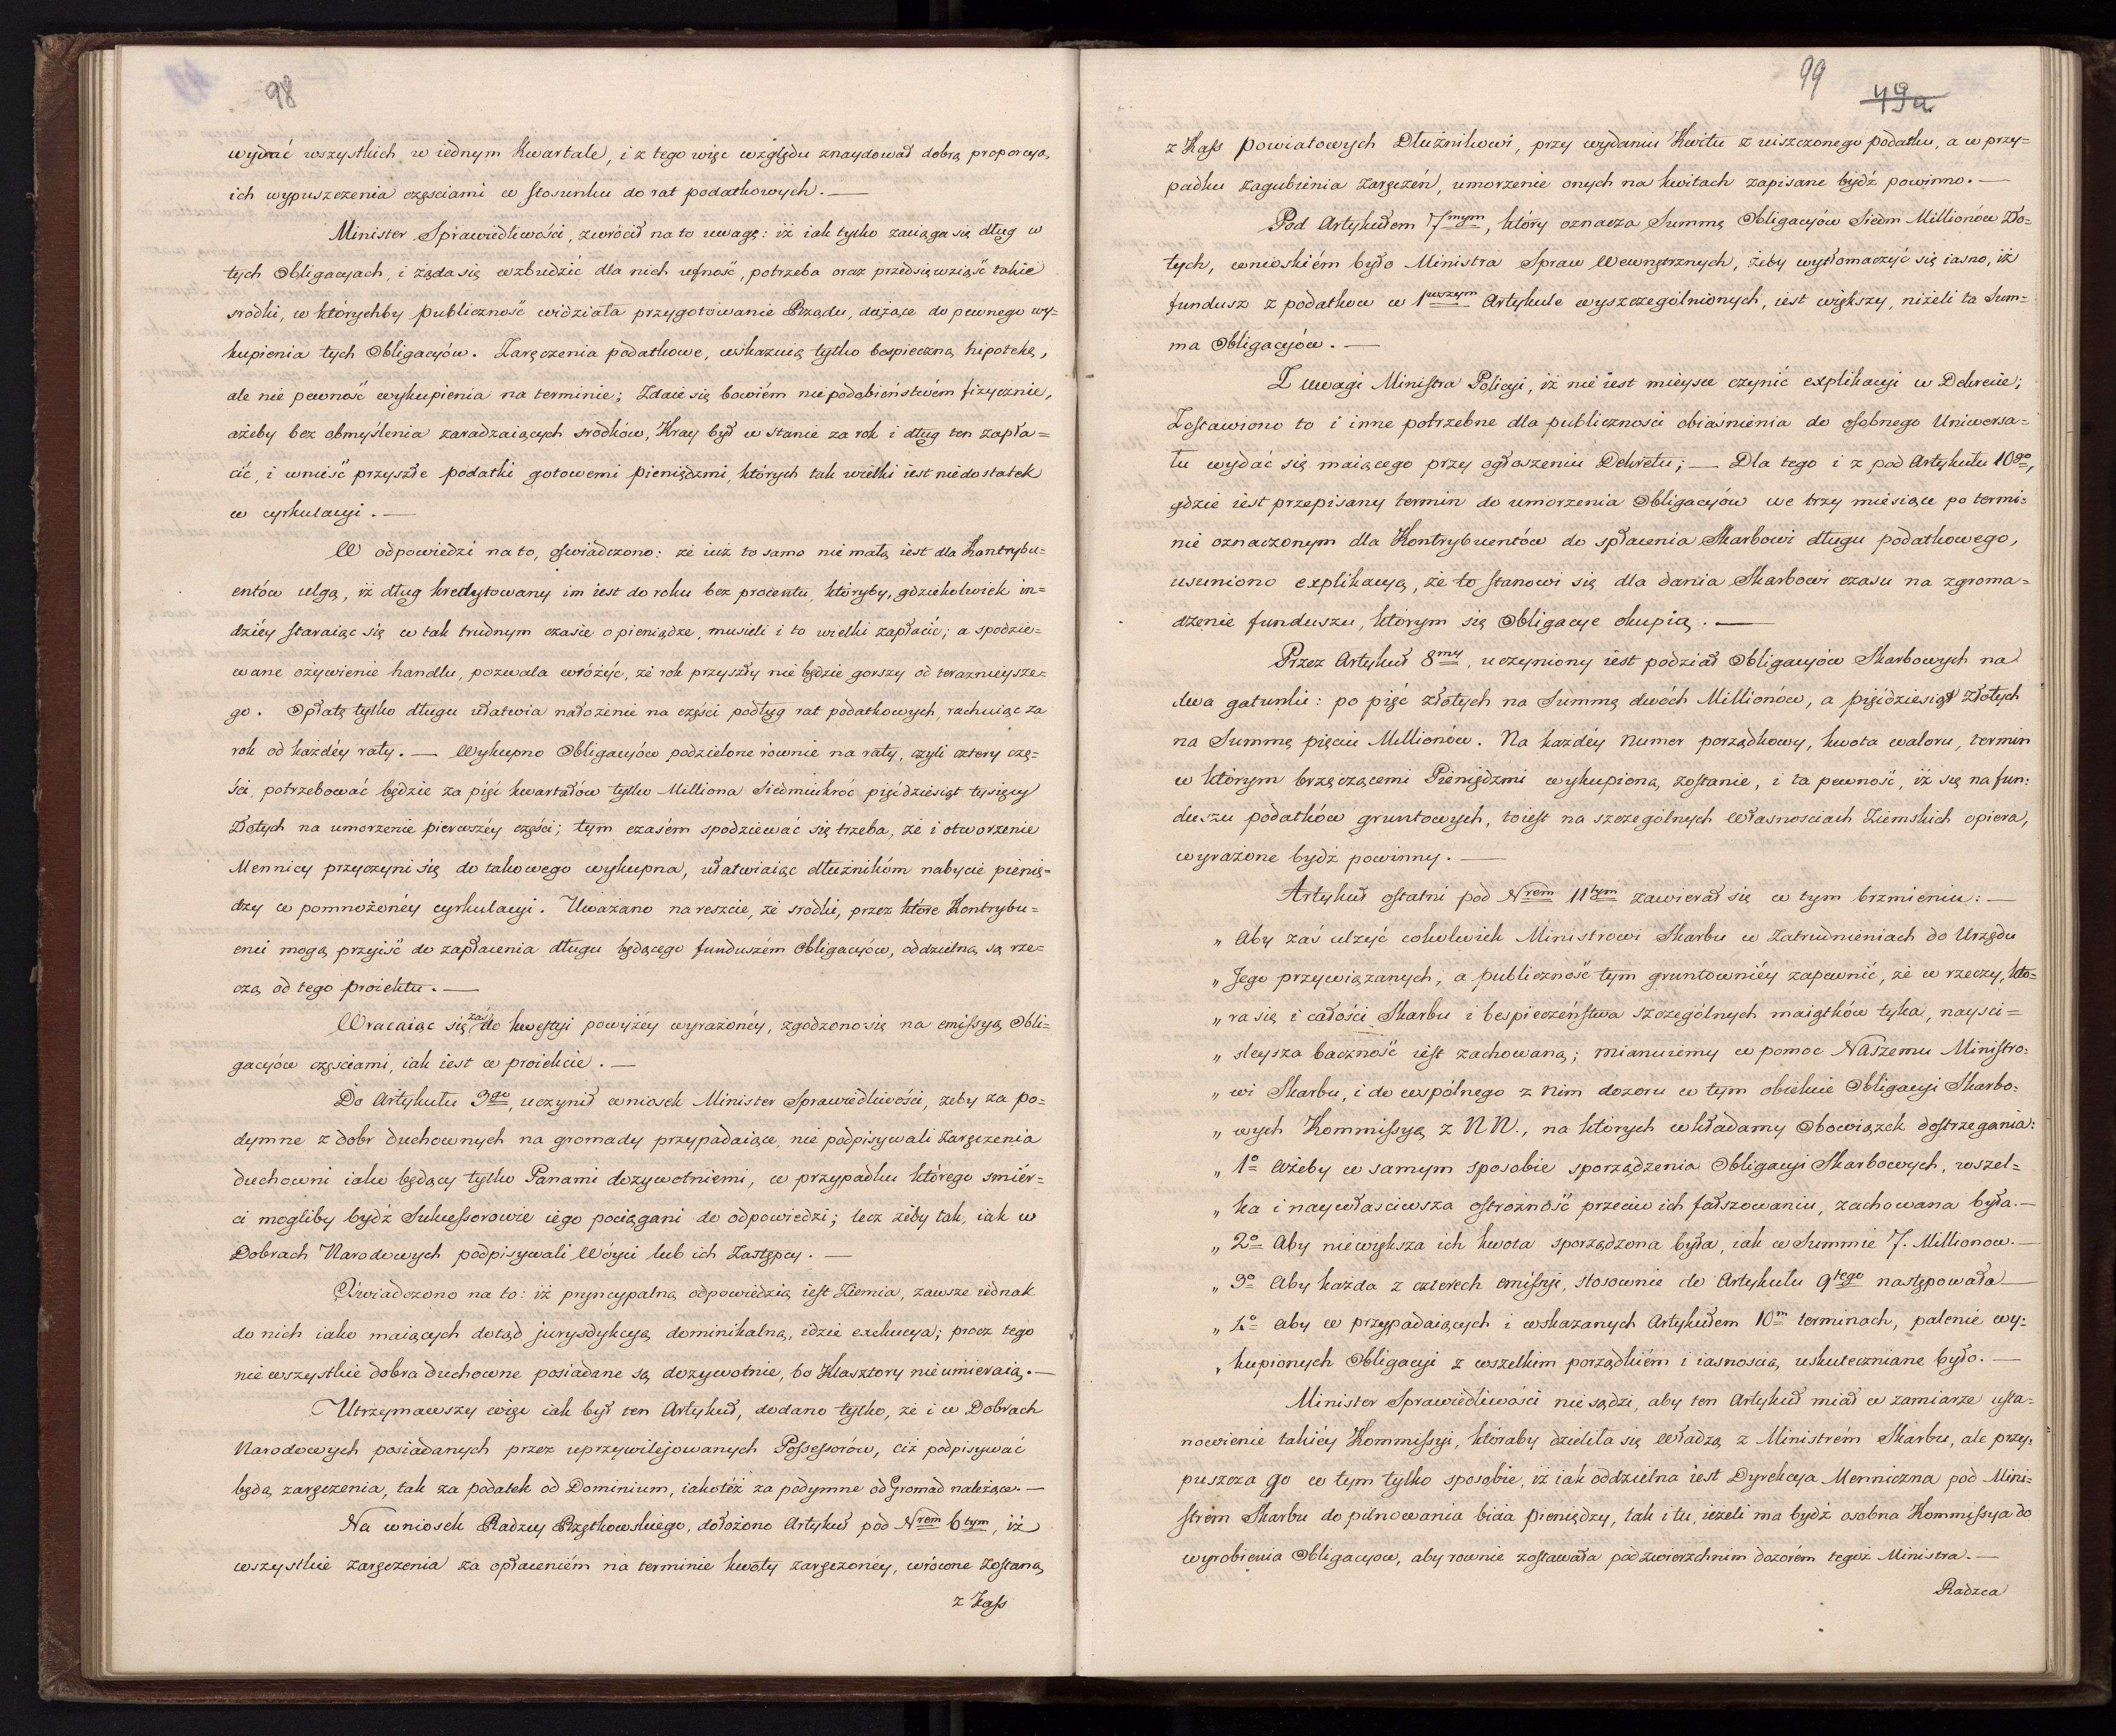 98
wydać wszystkich w iednym Kwartale, i z tego więc względu znaydował dobrą proporcyą,
ich wypuszczenia częściami w stosunku do rat podatkowych. —
Minister Sprawiedliwości, zwrócił na to uwagę: iż iak tylko zaciąga się dług w
tych Obligacyach, i żąda się wzbudzić dla nich ufność, potrzeba oraz przedsięwziąść takie
srodki, w którychby publiczność widziała przygotowanie Rządu, dążące do pewnego wy=
kupienia tych Obligacyów. Zaręczenia podatkowe, wskazuią tylko bespieczną hipotekę,
ale nie pewność wykupienia na terminie; Zdaie się bowiém niepodobieństwém fizycznie,
ażeby bez obmyślenia zaradzaiących srodków, Kray był w stanie za rok i dług ten zapła=
cić, i wnieść przyszłe podatki gotowemi pieniędzmi, których tak wielki iest niedostatek
w cyrkulacyi. —
W odpowiedzi na to, oświadczono: że iuż to samo nie małą iest dla Kontrybu=
entów ulgą, iż dług kredytowany im iest do roku bez procentu, któryby, gdziekolwiek in=
dziéy staraiąc się w tak trudnym czasie o pieniądze, musieli i to wielki zapłacić; a spodzie=
wane ożywienie handlu, pozwala wróżyć, że rok przyszły nie będzie gorszy od teraznieysze=
go. Opłatę tylko długu ułatwia nałożenie na części podług rat podatkowych, rachuiąc za
rok od każdéy raty. — Wykupno Obligacyów podzielone równie na raty, czyli cztery czę=
ści, potrzebować będzie za pięć kwartałów tylko Milliona Siedmiukroć pięćdziesiąt tysięcy
Złotych na umorzenie pierwszéy części; tym czasém spodziewać się trzeba, że i otworzenie
Mennicy przyczyni się do takowego wykupna, ułatwiaiąc dłużnikóm nabycie pienię=
dzy w pomnożonéy cyrkulacyi. Uważano nareszcie, że srodki, przez które Kontrybu=
enci mogą przyiść do zapłacenia długu będącego funduszém Obligacyów, oddzielną są rze=
czą od tego proiektu. —
Wracaiąc się zaś do kwestyi powyżéy wyrażonéy, zgodzono się na emissyą Obli=
gacyów częściami, iak iest w proiekcie. —
Do Artykułu 3go, uczynił wniosek Minister Sprawiedliwości, żeby za po=
dymne z dobr duchownych na gromady przypadaiące, nie podpisywali Zaręczenia
duchowni iako będący tylko Panami dozywotniemi, w przypadku którego smier=
ci mogliby bydź Sukcessorowie iego pociągani do odpowiedzi; lecz żeby tak, iak w
Dobrach Narodowych podpisywali Wóyci lub ich Zastępcy. —
Oświadczono na to: iż pryncypalną odpowiedzią iest Ziemia, zawsze iednak
do nich iako maiących dotąd jurysdykcyą dominikalną, idzie exekucya; procz tego
nie wszystkie dobra duchowne posiadane są dozywotnie, bo Klasztory nie umieraią. —
Utrzymawszy więc iak był ten Artykuł, dodano tylko, że i w Dobrach
Narodowych posiadanych przez uprzywilejowanych Possessorów, ciż podpisywać
będą zaręczenia, tak za podatek od Dominium, iakotéż za podymne od Gromad należące. —
Na wniosek Radzcy Rzętkowskiego, dołożono Artykuł pod Nrem 6tym, iż
wszystkie zaręczenia za opłaceniém na terminie kwoty zaręczonéy, wrócone zostaną
z Kass
99
49a
z Kass powiatowych Dłużnikowi, przy wydaniu Kwitu z uiszczonego podatku, a w przy=
padku zagubienia zaręczeń, umorzenie onych na kwitach zapisane bydź powinno. —
Pod Artykułem 7mym, który oznacza Summę Obligacyów Siedm Millionów Zło=
tych, wnioskiém było Ministra Spraw Wewnętrznych, żeby wytłomaczyć się iasno, iż
fundusz z podatkow w 1wszym Artykule wyszczególnionych, iest większy, niżeli ta Sum=
ma Obligacyów. —
Z uwagi Ministra Policyi, iż nie iest mieysce czynić explikacyi w Dekrecie;
Zostawiono to i inne potrzebne dla publicznosci obiaśnienia do osobnego Uniwersa=
łu wydać się maiącego przy ogłoszeniu Dekretu; — Dla tego i z pod Artykułu 10go,
gdzie iest przepisany termin do umorzenia Obligacyów we trzy miesiące po termi=
nie oznaczonym dla Kontrybuentów do spłacenia Skarbowi długu podatkowego,
usunione explikacyą, że to stanowi się dla dania Skarbowi czasu na zgroma=
dzenie funduszu, którym się Obligacye okupią. —
Przez Artykuł 8my, uczyniony iest podział Obligacyów Skarbowych na
dwa gatunki: po pięć złotych na Summę dwóch Millionów, a pięćdziesiąt Złotych
na Summę pięciu Millionów. Na każdéy Numer porządkowy, kwota waloru, termin
w którym brzęczącemi Pieniędzmi wykupioną zostanie, i ta pewność, iż się na fun=
duszu podatków gruntowych, toiest na szczególnych własnosciach Ziemskich opiera,
wyrażone bydź powinny. —
Artykuł ostatni pod Nrem 11tym zawierał się w tym brzmieniu: —
„ Aby zaś ulżyć cokolwiek Ministrowi Skarbu w Zatrudnieniach do Urzędu
„ Jego przywiązanych, a publiczność tym gruntowniéy zapewnić, że w rzeczy, któ=
„ ra się i całości Skarbu i bespieczeństwa szczególnych maiątków tyka, naysci=
„ sleysza baczność iest zachowaną; mianuiemy w pomoc Naszemu Ministro=
„ wi Skarbu, i do wspólnego z Nim dozoru w tym obiekcie Obligacyi Skarbo=
„ wych Kommissyą z NN., na których wkładamy Obowiązek dostrzegania:
„ 1o Ażeby w samym sposobie sporządzenia Obligacyi Skarbowych, wszel=
„ ka i naywłasciwsza ostrożność przeciw ich fałszowaniu, zachowana była. —
„ 2o Aby niewiększa ich kwota sporządzona była, iak w Summie 7. Millionow. —
„ 3o Aby każda z czterech emissyi, stosownie do Artykułu 9tego następowała —
„ 4o Aby w przypadaiących i wskazanych Artykułem 10m terminach, palenie wy=
„ kupionych Obligacyi z wszelkim porządkiém i iasnoscią, uskuteczniane było. —
Minister Sprawiedliwości nie sądzi, aby ten Artykuł miał w zamiarze usta=
nowienie takiéy Kommissyi, któraby dzieliła się władzą z Ministrém Skarbu, ale przy=
puszcza go w tym tylko sposobie, iż iak oddzielna iest Dyrekcya Menniczna pod Mini=
strem Skarbu do pilnowania bicia pieniędzy, tak i tu, ieżeli ma bydź osobna Kommissya do
wyrobienia Obligacyow, aby rownie zostawała pod zwierzchnim dozorém tegoż Ministra. —
Radzca